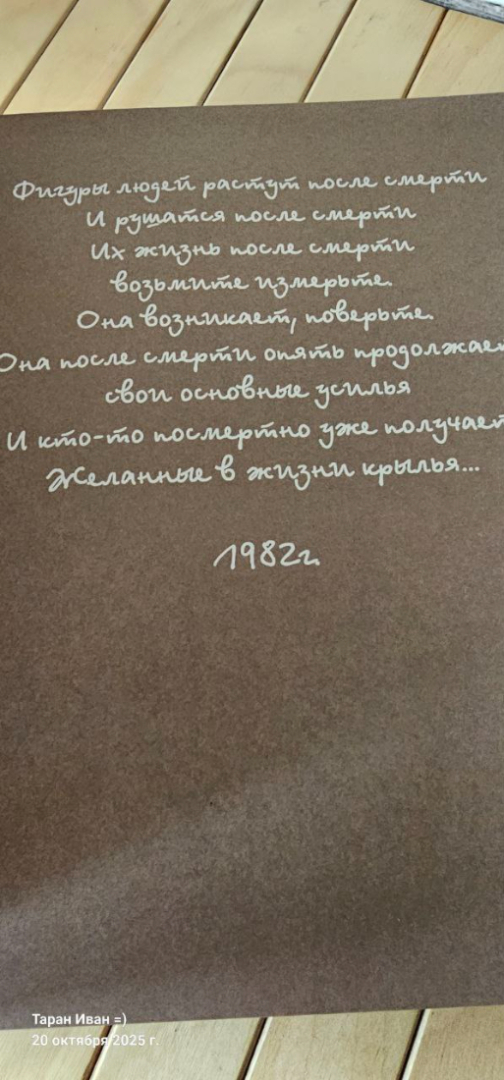 Фигуры людей растут после смерти
И рушатся после смерти
Их жизнь после смерти
возьмите измерьте.
Она возникает, поверьте.
Она после смерти опять продолжает
свои основные усилья
И кто-то посмертно уже получает
Желанные в жизни крылья...
1982г.
Таран Иван =)
20 октября 2025 г.